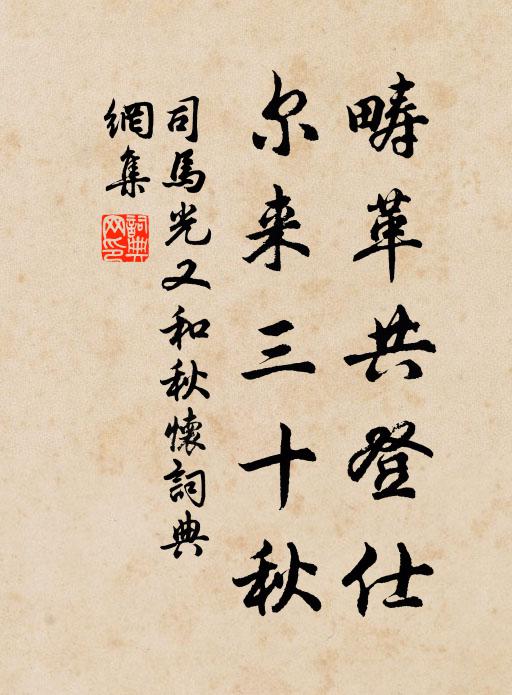 畴革共登仕
尔来三十秋
司馬光又和秋懷詞典
網集
詞典
网印